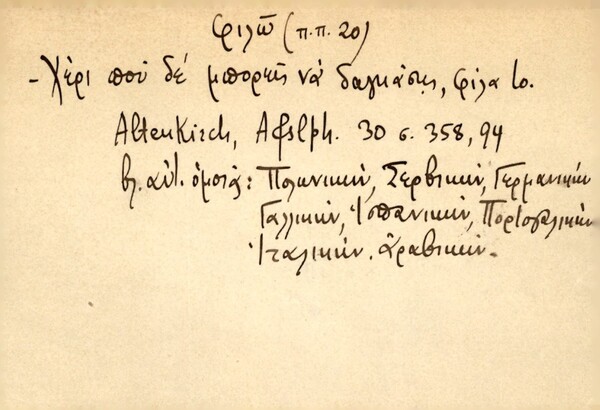 φιλῶ (π.π. 20)
- Χέρι ποὺ δέ μπορεῖς νά δαγκάσῃς, φίλα το.
Altenkirch, Afslph. 30 σ. 358, 94
βλ. αὐτ. ὅμοια: Πολωνικήν, Σερβικήν, Γερμανικήν
Γαλλικήν, Ἱσπανικήν, Πορτογαλικήν
Ἰταλικήν. ἀραβικήν.